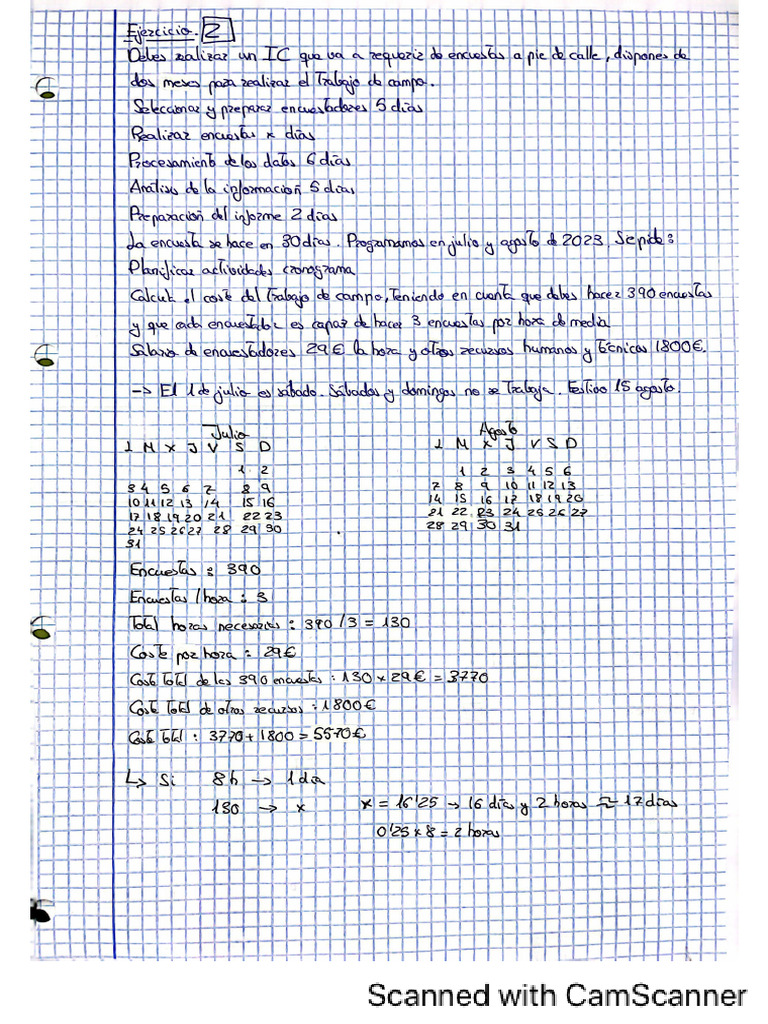 Ejercicio. 2
Debes realizar un IC que va a requerir de encuestas a pie de calle, dispones de
dos meses para realizar el trabajo de campo.
Seleccionar y preparar encuestadores 5 días
Realizar encuestas x días
Procesamiento de los datos 6 días
Análisis de la información 5 días
Preparación del informe 2 días
La encuesta se hace en 30 días. Programamos en julio y agosto de 2023. Se pide:
Planificar actividades cronograma
Calcula el coste del trabajo de campo, teniendo en cuenta que debes hacer 390 encuestas
y que cada encuestador es capaz de hacer 3 encuestas por hora de media
Salario de encuestadores 29€ la hora y otros recursos humanos y técnicos 1800€.
-> El 1 de julio es sábado. Sábados y domingos no se trabaja. Festivo 15 agosto.
Julio
L M X J V S D
1 2
3 4 5 6 7 8 9
10 11 12 13 14 15 16
17 18 19 20 21 22 23
24 25 26 27 28 29 30
31
Agosto
L M X J V S D
1 2 3 4 5 6
7 8 9 10 11 12 13
14 15 16 17 18 19 20
21 22 23 24 25 26 27
28 29 30 31
Encuestas : 390
Encuestas / hora : 3
Total horas necesarias : 390 / 3 = 130
Coste por hora : 29€
Coste total de las 390 encuestas : 130 x 29€ = 3770
Coste total de otros recursos : 1800€
Coste total : 3770 + 1800 = 5570€
↳ Si 8h -> 1 día
130 -> x x = 16'25 -> 16 días y 2 horas ≈ 17 días
0'25 x 8 = 2 horas
Scanned with CamScanner